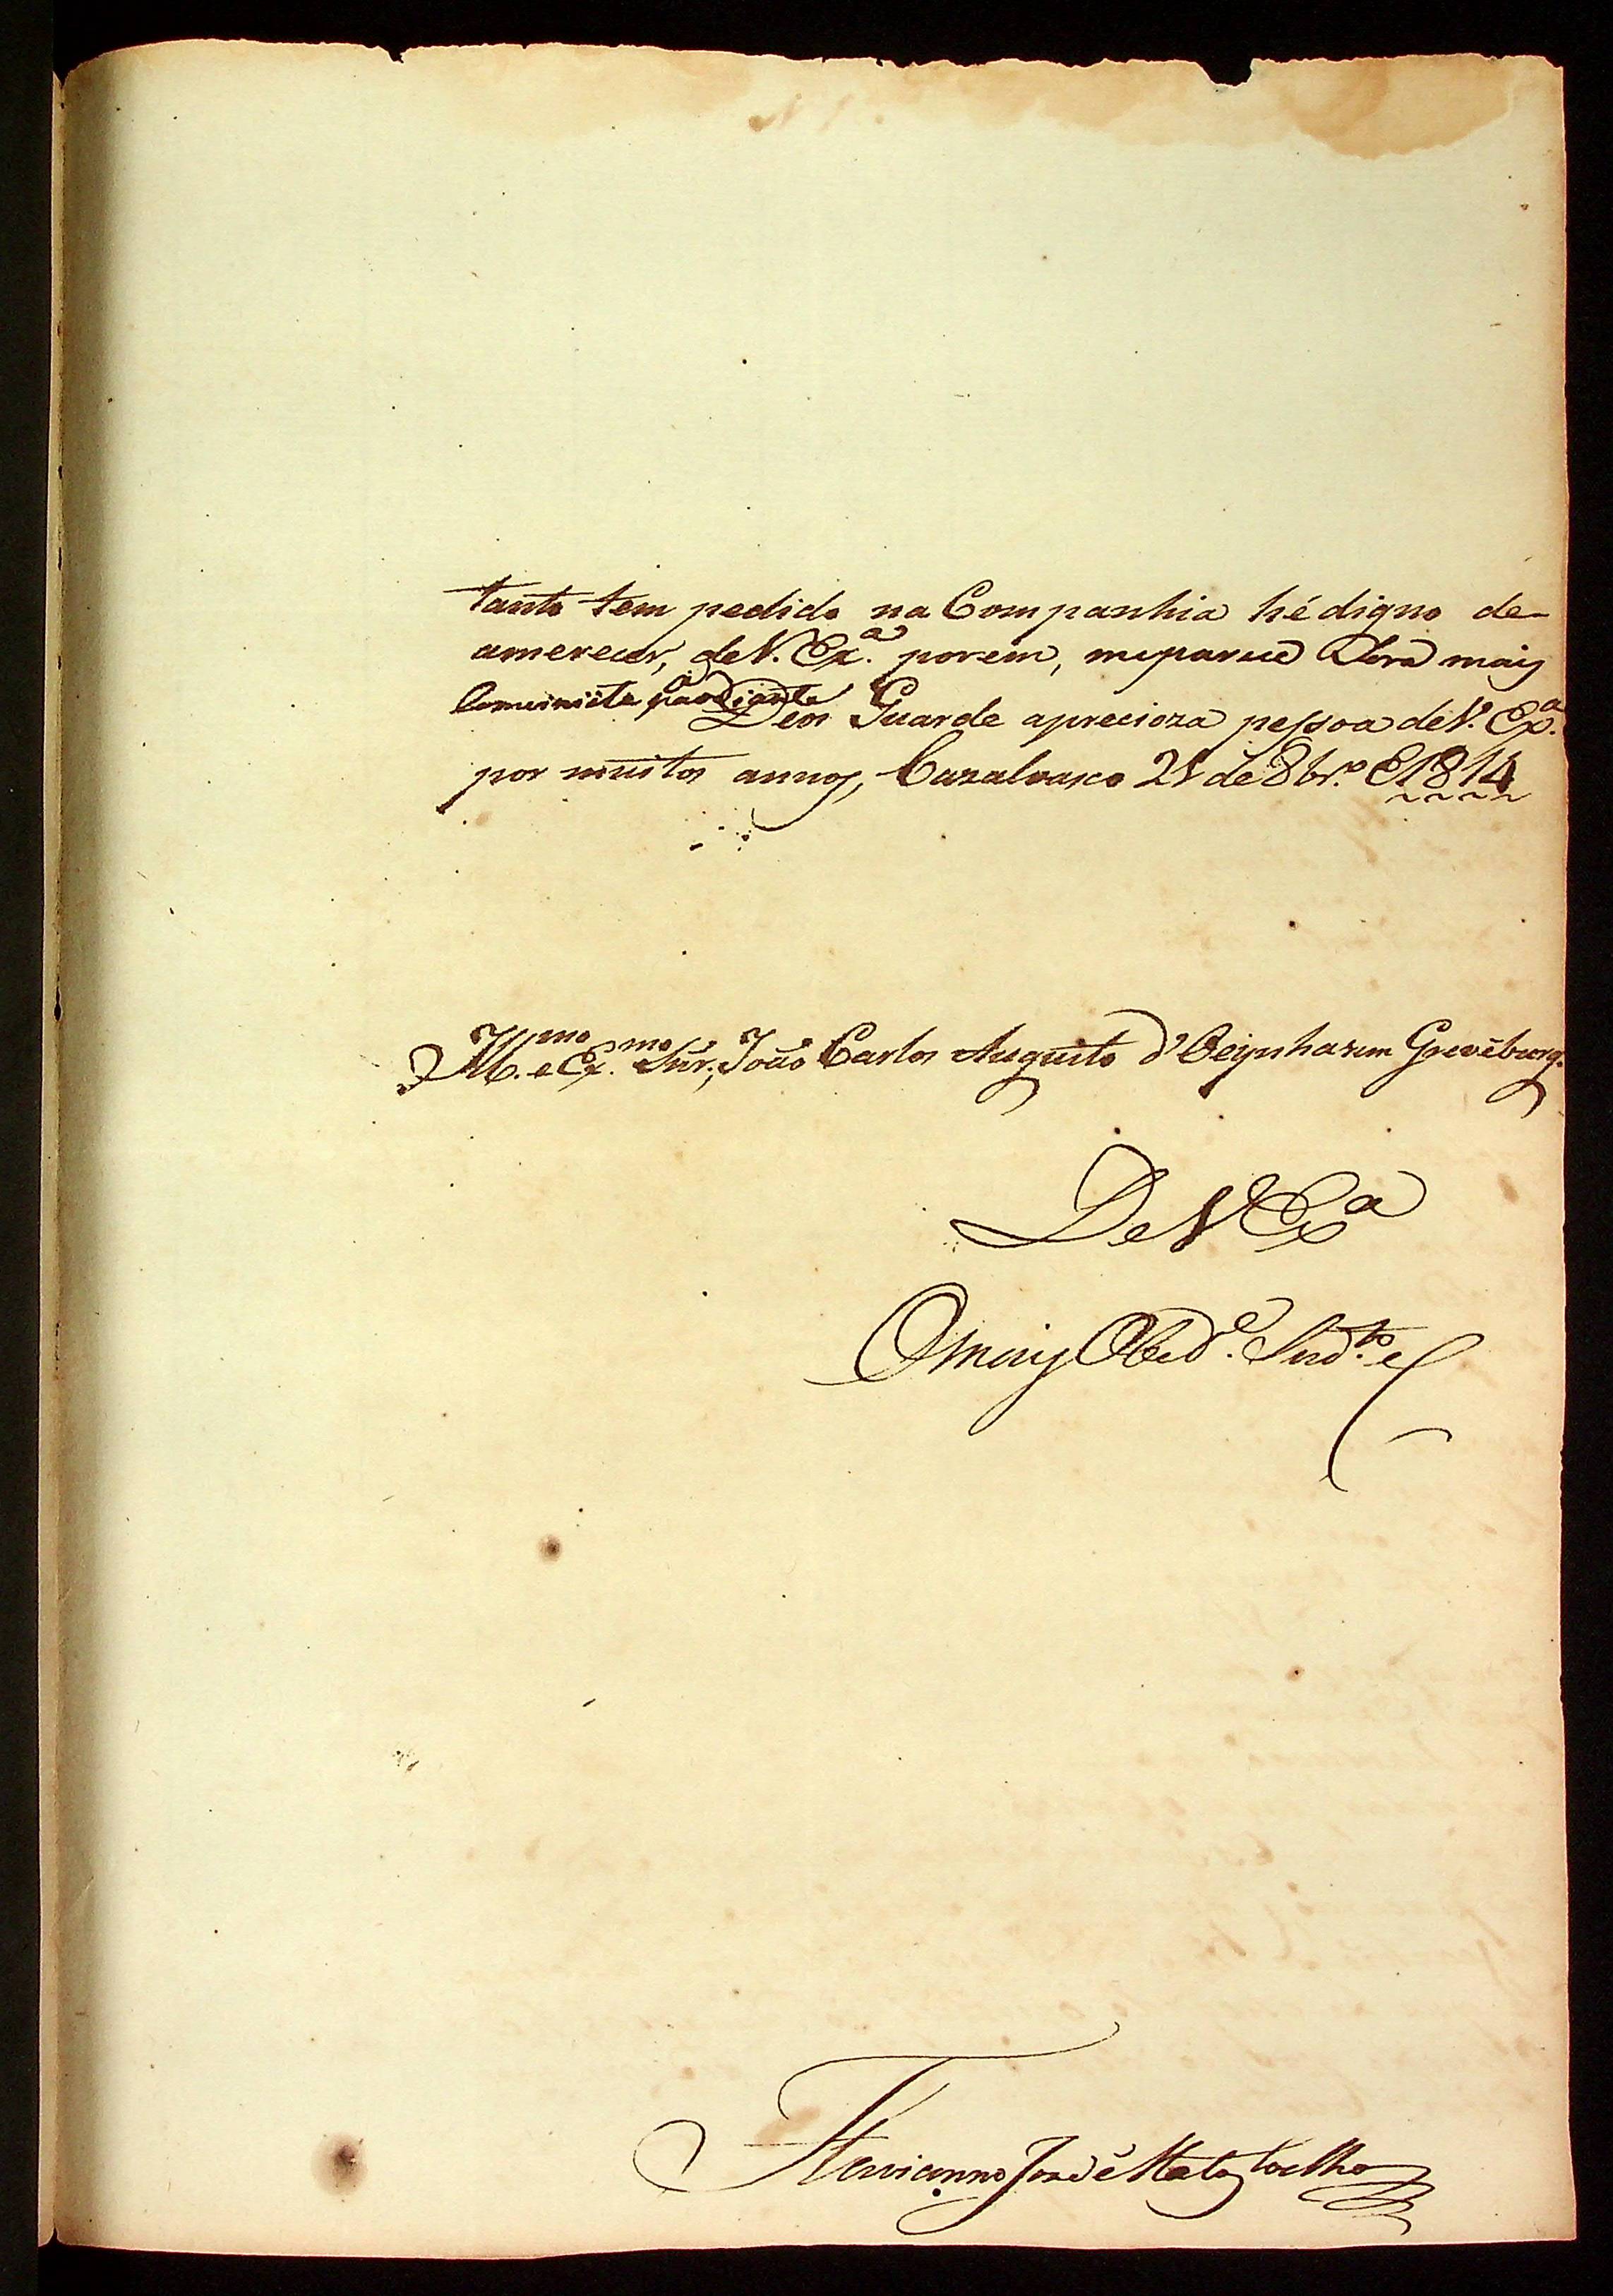 tanto tem pedido na Companhia hé digno de
amerecer, de V. Ex.ª porem, meparece Sera mais
Comviniête p.ª odiante
Deos Guarde apreciosa pessoa de V. Ex.ª
por muitos annos, Cazalvasco 28 de 8br.º E1814
Ill.mo e Ex.mo Snr. João Carlos Augusto d'Oeynhasem Grevêburg.
De V Ex.ª
O mais Obed.e Sud.to e
Flavianno José Matos Coelho